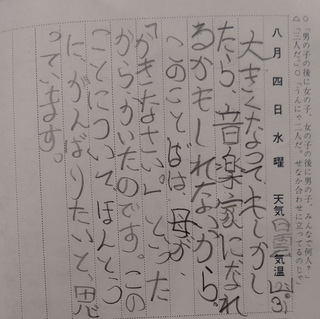 ○「男の子の後に女の子、女の子の後に男の子、みんなで何人？」
△「三人だ。」○「うんにゃ二人だ。せなか合わせに立ってるのじゃ」
八月四日水曜 天気 曇 気温
大きくなって、もしかし
たら、音楽家になれ
るかもしれないから、
へのことばは、母が、
「かきなさい。」といった
からかいたのです。この
ことについて、ほんとう
に、がんばりたいと、思
っています。